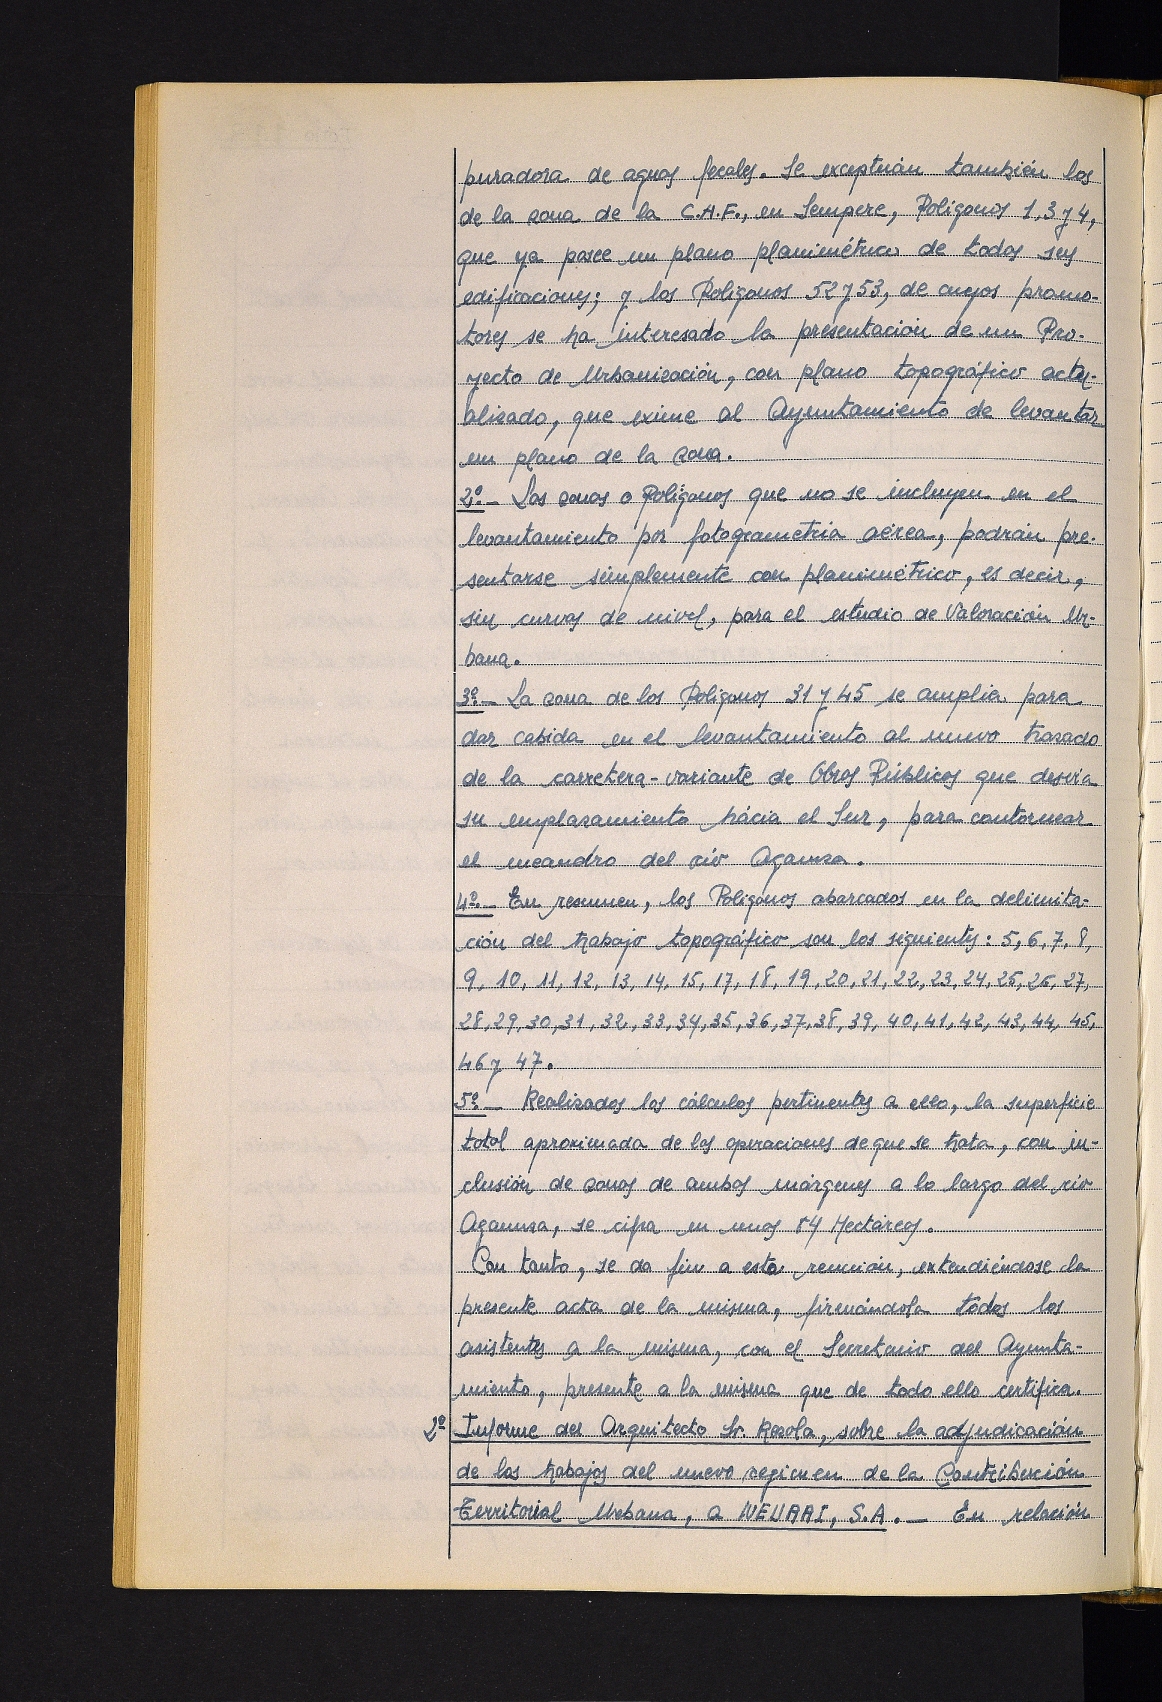 puradora de aguas fecales. Se exceptúan también los
de la zona de la C.A.F., en Sempere, Polígonos 1, 3 y 4,
que ya posee un plano planimétrico de todas sus
edificaciones; y los Polígonos 52 y 53, de cuyos promo-
tores se ha interesado la presentación de un Pro-
yecto de Urbanización, con plano topográfico actu-
alizado, que exime al Ayuntamiento de levantar
un plano de la zona.
2º.- Las zonas o Polígonos que no se incluyen en el
levantamiento por fotogrametría aérea, podrán pre-
sentarse simplemente con planimétrico, es decir,
sin curvas de nivel, para el estudio de Valoración Ur-
bana.
3º.- La zona de los Polígonos 31 y 45 se amplía para
dar cabida en el levantamiento al nuevo trazado
de la carretera-variante de Obras Públicas que desvía
su emplazamiento hácia el Sur, para contornear
el meandro del río Agaunza.
4º.- En resumen, los Polígonos abarcados en la delimita-
ción del trabajo topográfico son los siguientes: 5, 6, 7, 8,
9, 10, 11, 12, 13, 14, 15, 17, 18, 19, 20, 21, 22, 23, 24, 25, 26, 27,
28, 29, 30, 31, 32, 33, 34, 35, 36, 37, 38, 39, 40, 41, 42, 43, 44, 45,
46 y 47.
5º.- Realizados los cálculos pertinentes a ello, la superficie
total aproximada de las operaciones de que se trata, con in-
clusión de zonas de ambas márgenes a lo largo del río
Agaunza, se cifra en unas 84 Hectáreas.
Con tanto, se da fin a esta reunión, extendiéndose la
presente acta de la misma, firmándola todos los
asistentes a la misma, con el Secretario del Ayunta-
miento, presente a la misma que de todo ello certifica.
2º Informe del Arquitecto Sr. Rezola, sobre la adjudicación
de los trabajos del nuevo regimen de la Contribución
Territorial Urbana, a NEURRI, S.A. .- En relación